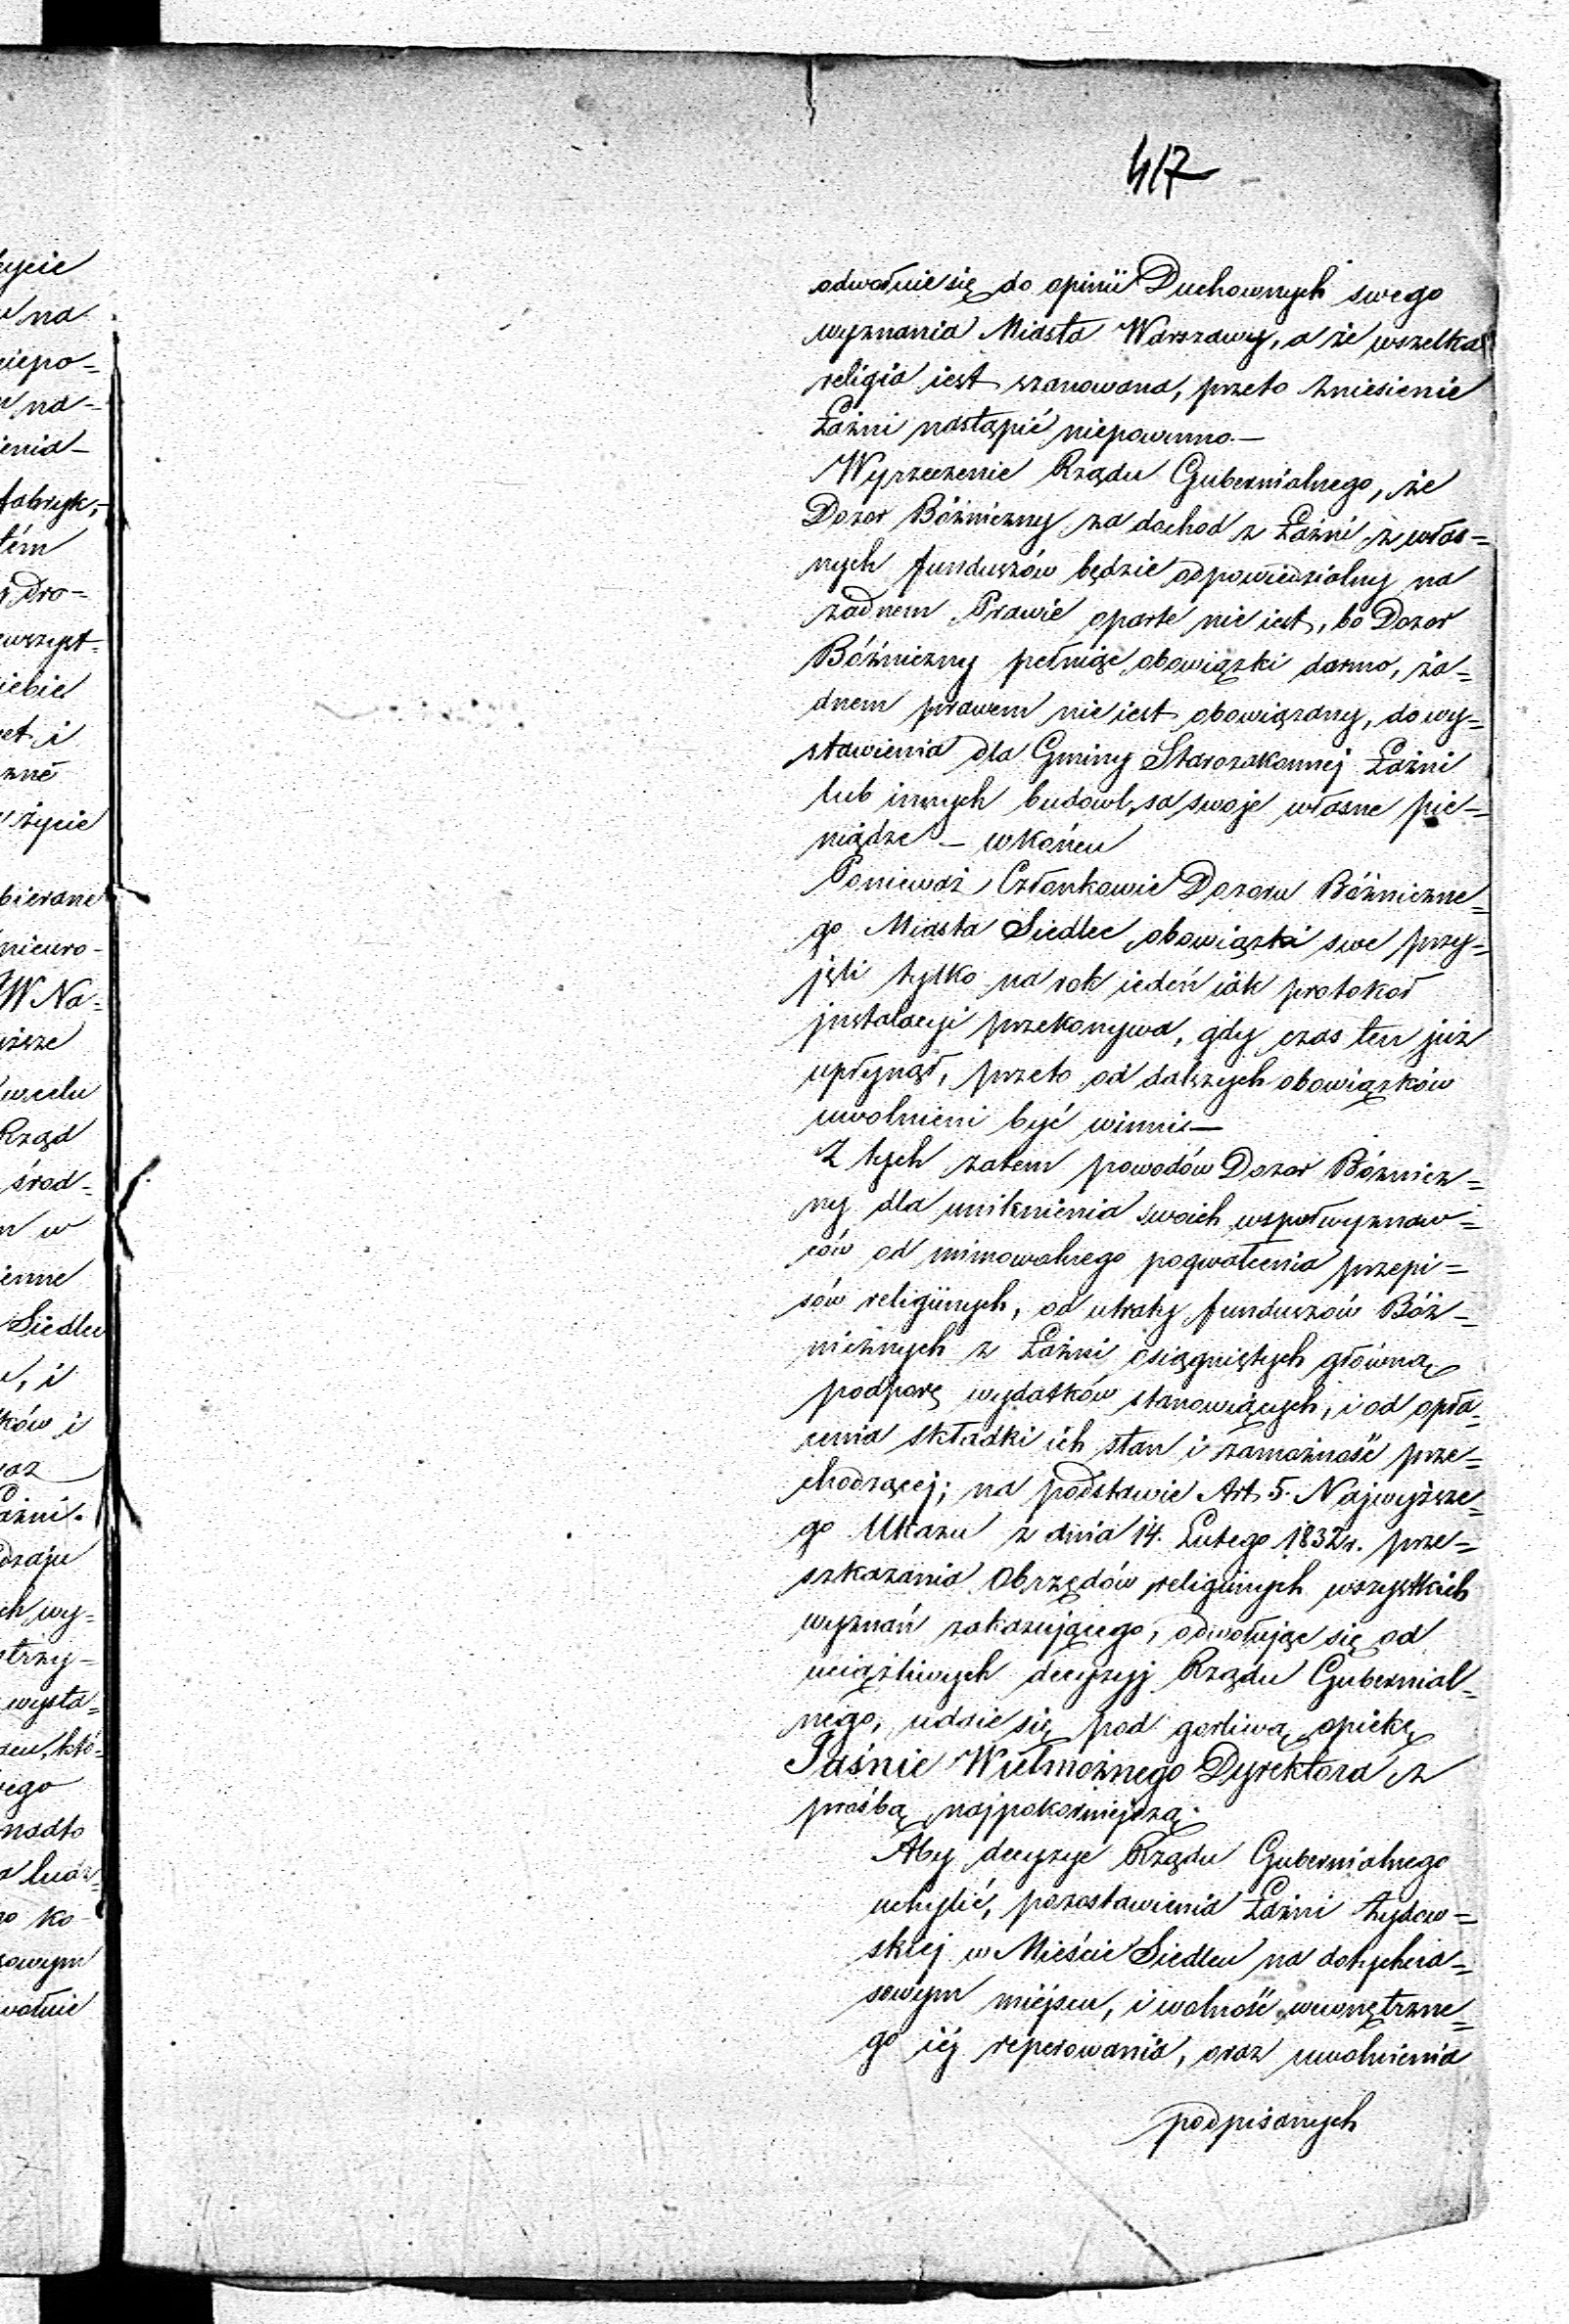 417
odwołuie się do opinii Duchownych swego
wyznania Miasta Warszawy, a że wszelka
religia iest szanowana, przeto zniesienie
Łaźni nastąpić niepowinno.—
Wyrzeczenie Rządu Gubernialnego, że
Dozor Bóżniczny za dochod z Łaźni z włas=
nych funduszów będzie odpowiedzialny na
żadnem Prawie oparte nie iest, bo Dozor
Bóżniczny pełniąc obowiązki darmo, ża=
dnem prawem nie iest obowiązany, do wy=
stawienia dla Gminy Starozakonnej Łaźni
lub innych budowl, za swoje własne pie=
niądze — wkońcu
Ponieważ Członkowie Dozoru Bóżniczne=
go Miasta Siedlec obowiązki swe przy=
jęli tylko na rok ieden iak protokoł
jnstalacyi przekonywa, gdy czas ten już
upłynął, przeto od dalszych obowiązków
uwolnieni być winni.—
Z tych zatem powodów Dozor Bóżnicz=
ny dla uniknienia swoich współwyznaw=
ców od mimowolnego pogwałcenia przepi=
sów religiinych, od utraty funduszów Bóż=
nicznych z Łaźni osiągniętych główną
podporę wydatków stanowiących, i od opła=
cenia składki ich stan i zamożność prze=
chodzącej; na podstawie Art. 5. Najwyższe=
go Ukazu z dnia 14. Lutego 1832 r. prze=
szkazania Obrzędów religiinych wszystkich
wyznań zakazującego, odwołując się od
uciążliwych decyzyj Rządu Gubernial=
nego, udaie się pod gorliwą opiekę
Jaśnie Wielmożnego Dyrektora z
prośbą najpokorniejszą.
Aby decyzye Rządu Gubernialnego
uchylić, pozostawienia Łaźni żydow=
skiej w Mieście Siedlcu na dotychcza=
sowym miejscu, i wolność wewnętrzne=
go iéj reperowania, oraz uwolnienia
podpisanych